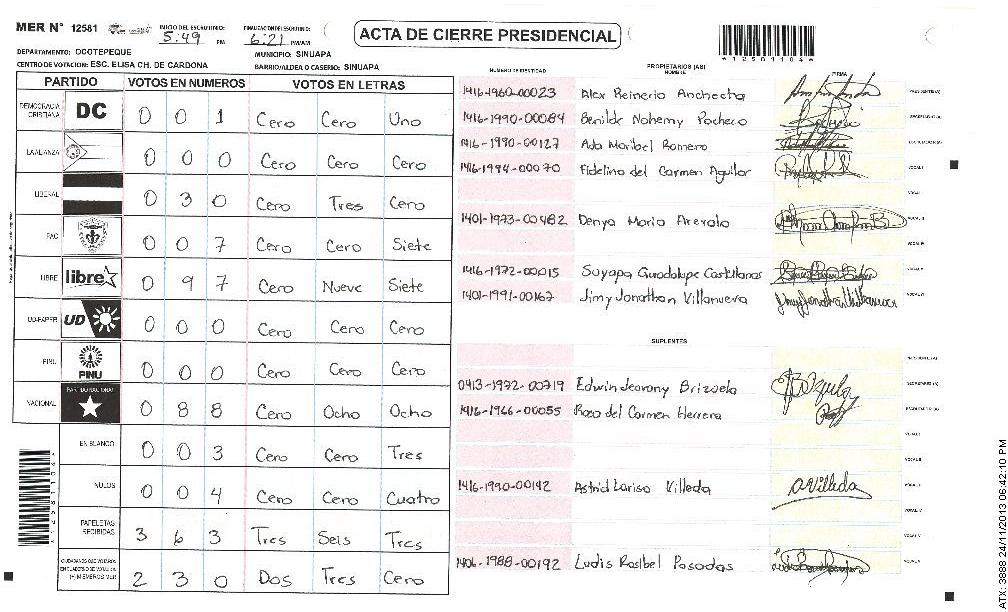 MER N° 12581
INICIO DEL ESCRUTINIO: 5:49 PM
FINALIZACION DEL ESCRUTINIO: 6:21 PM/AM
ACTA DE CIERRE PRESIDENCIAL
*12581104*
DEPARTAMENTO: OCOTEPEQUE
MUNICIPIO: SINUAPA
CENTRO DE VOTACION: ESC. ELISA CH. DE CARDONA
BARRIO/ALDEA O CASERIO: SINUAPA
PARTIDO VOTOS EN NUMEROS VOTOS EN LETRAS
DEMOCRACIA CRISTIANA DC 0 0 1 Cero Cero Uno
LA ALIANZA 0 0 0 Cero Cero Cero
LIBERAL 0 3 0 Cero Tres Cero
PAC 0 0 7 Cero Cero Siete
LIBRE libre 0 9 7 Cero Nueve Siete
UD-FAPER UD 0 0 0 Cero Cero Cero
PINU PINU 0 0 0 Cero Cero Cero
NACIONAL PARTIDO NACIONAL 0 8 8 Cero Ocho Ocho
EN BLANCO 0 0 3 Cero Cero Tres
NULOS 0 0 4 Cero Cero Cuatro
PAPELETAS RECIBIDAS 3 6 3 Tres Seis Tres
CIUDADANOS QUE VOTARON EN CUADERNO DE VOTACION (+) MIEMBROS MER 2 3 0 Dos Tres Cero
NUMERO DE IDENTIDAD PROPIETARIOS (AS) NOMBRE FIRMA
1416-1960-00023 Alex Reinerio Anchecta PRESIDENTE(A)
1416-1990-00084 Benilde Nohemy Pacheco SECRETARIO (A)
1416-1990-00127 Ada Maribel Romero ESCRUTADOR (A)
1416-1994-00070 Fidelina del Carmen Aguilar VOCAL I
VOCAL II
1401-1973-00482 Denya Maria Arevalo VOCAL III
VOCAL IV
1416-1972-00015 Suyapa Guadalupe Castellanos VOCAL V
1401-1991-00167 Jimy Jonathan Villanueva VOCAL VI
SUPLENTES
PRESIDENTE (A)
0413-1972-00719 Edwin Jeovany Brizuela SECRETARIO (A)
1416-1966-00055 Rosa del Carmen Herrera ESCRUTADOR
VOCAL I
VOCAL II
1416-1990-00142 Astrid Larisa Villeda AVilleda
VOCAL IV
VOCAL V
1406-1988-00192 Ludis Rosibel Posadas
ATX: 3888 24/11/2013 06:42:10 PM